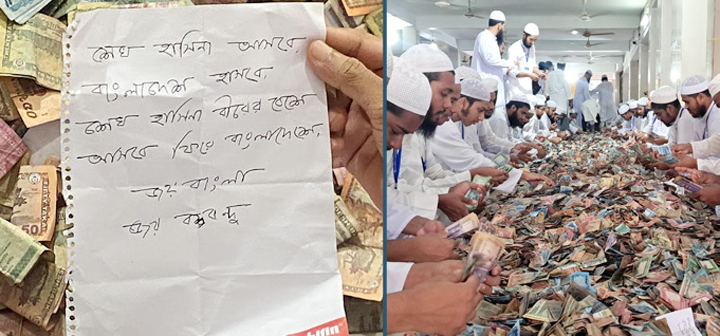 শেখ হাসিনা আসবে,
বাংলাদেশ হাসবে,
শেখ হাসিনা বীরের বেশে
আসবে ফিরে বাংলাদেশে,
জয় বাংলা
জয় বঙ্গবন্ধু
50